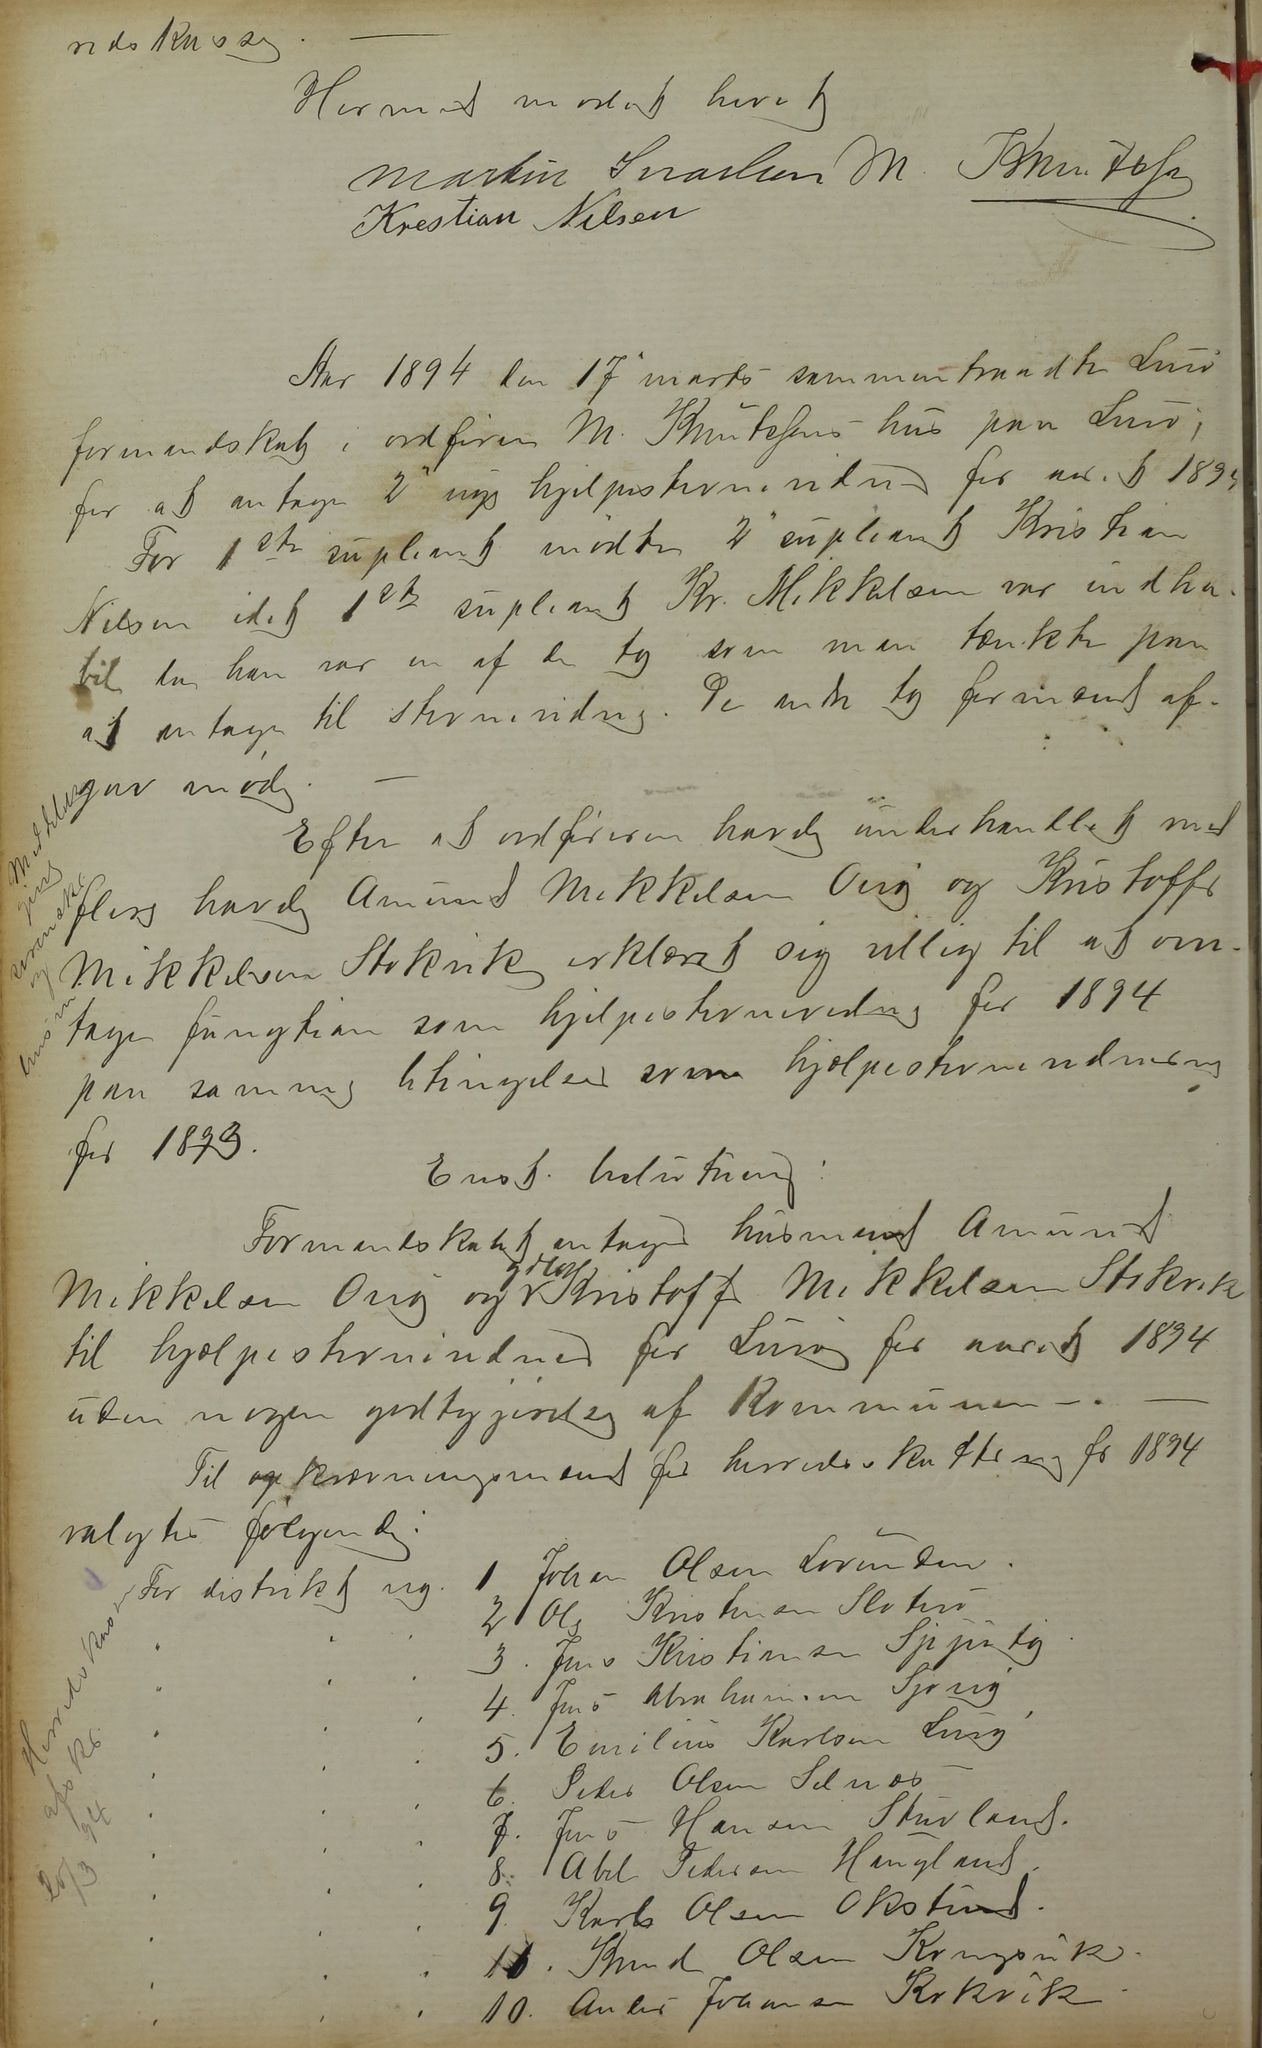 redskasse. —
Hermed mødet hevet
Martin Israelsen M. Knutssen
Krestian Nilsen
Aar 1894 den 17 marts sammentraadte Lurø
formandskab i ordførers M. Knutssens hus paa Lurø,
for at antage 2 nye hjelpestevnevidner for aaret 1894
For 1ste supleant mødte 2 supleant Kristian
Nilsen idet 1ste supleant Kr. Mikkelsen var indha-
bil da han var en af de to som man tænkte paa
at antage til stevnevidne. De andre to formænd af-
gav møde. —
Efter at ordføreren havde underhandlet med
flere havde Amund Mikkelsen Onø og Kristoffer
Mikkelsen Stokvik erklæret sig villig til at om-
tage fungtion som hjelpestevnevidne for 1894
paa samme betingelser som hjælpestevnevidnerne
for 1893.
Enst. beslutning:
Formandskabet antager husmand Amund
gdbr
Mikkelsen Onø og Kristoffer Mikkelsen Stokvik
til hjælpestevnevidner for Lurø for aaret 1894
uden nogen godtgjørelse af kommunen —. —
Til opkrævningsmænd for herredsskatterne for 1894
valgtes følgende:
For distrikt no. 1 Johan Olsen Lovunden.
" " " 2 Ole Kristensen Sleneø
" " " 3. Jens Kristiansen
" " " 4. Jens Abrahamsen
" " " 5. Emilius Karlsen Lurø
" " " 6. Peder Olsen Selnæs
" " " 7. Jens Hansen Stuvland.
" " " 8. Abel Pedersen Haugland.
" " " 9. Karl Olsen Olsen
" " " 11. Knud Olsen Kongsvik.
" " " 10. Anders Johansen Kvkvik
Meddelt
og
husm
Herredskas
afskr.
20/3 94